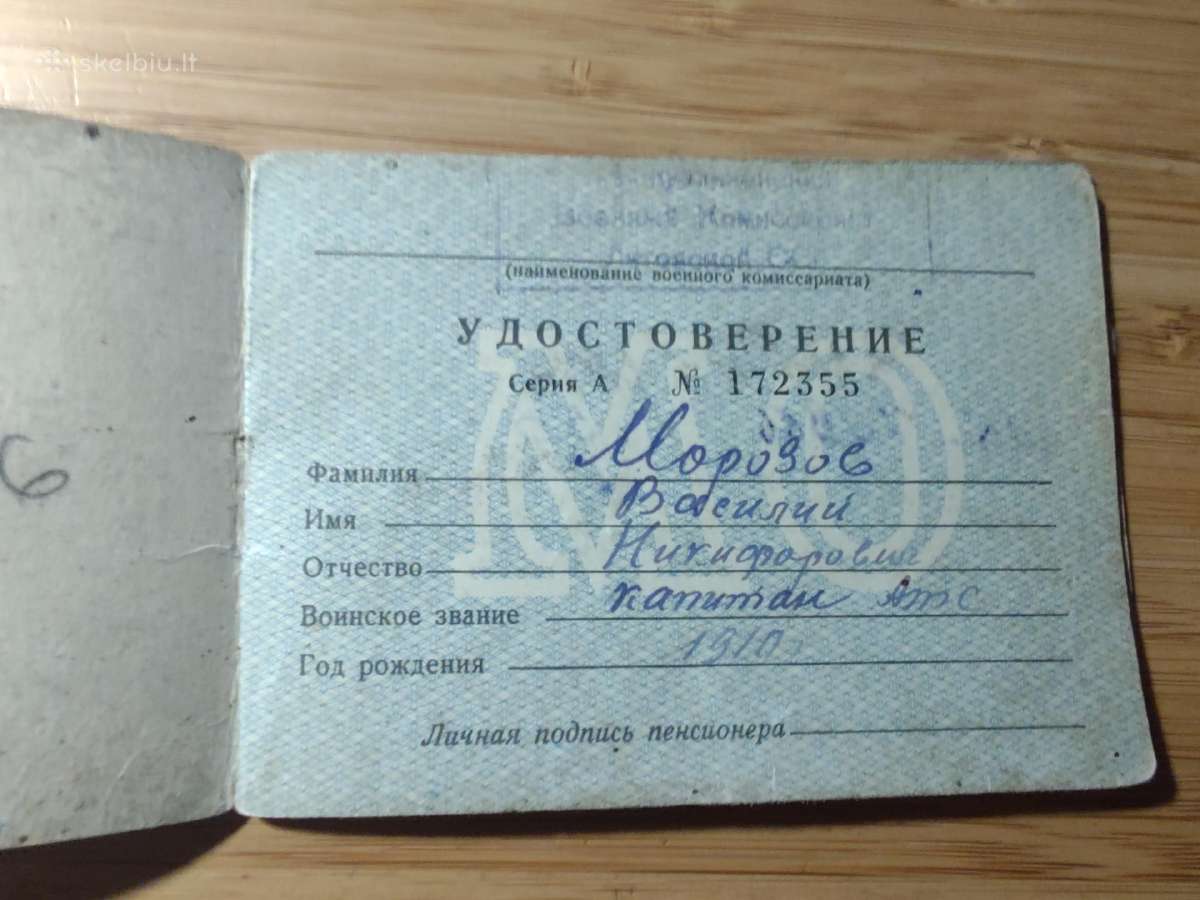 skelbiu.lt
Литовской СС
(наименование военного комиссариата)
УДОСТОВЕРЕНИЕ
Серия А № 172355
Фамилия Морозов
Имя Василий
Отчество Никифорович
Воинское звание капитан
Год рождения 1910
Личная подпись пенсионера
6